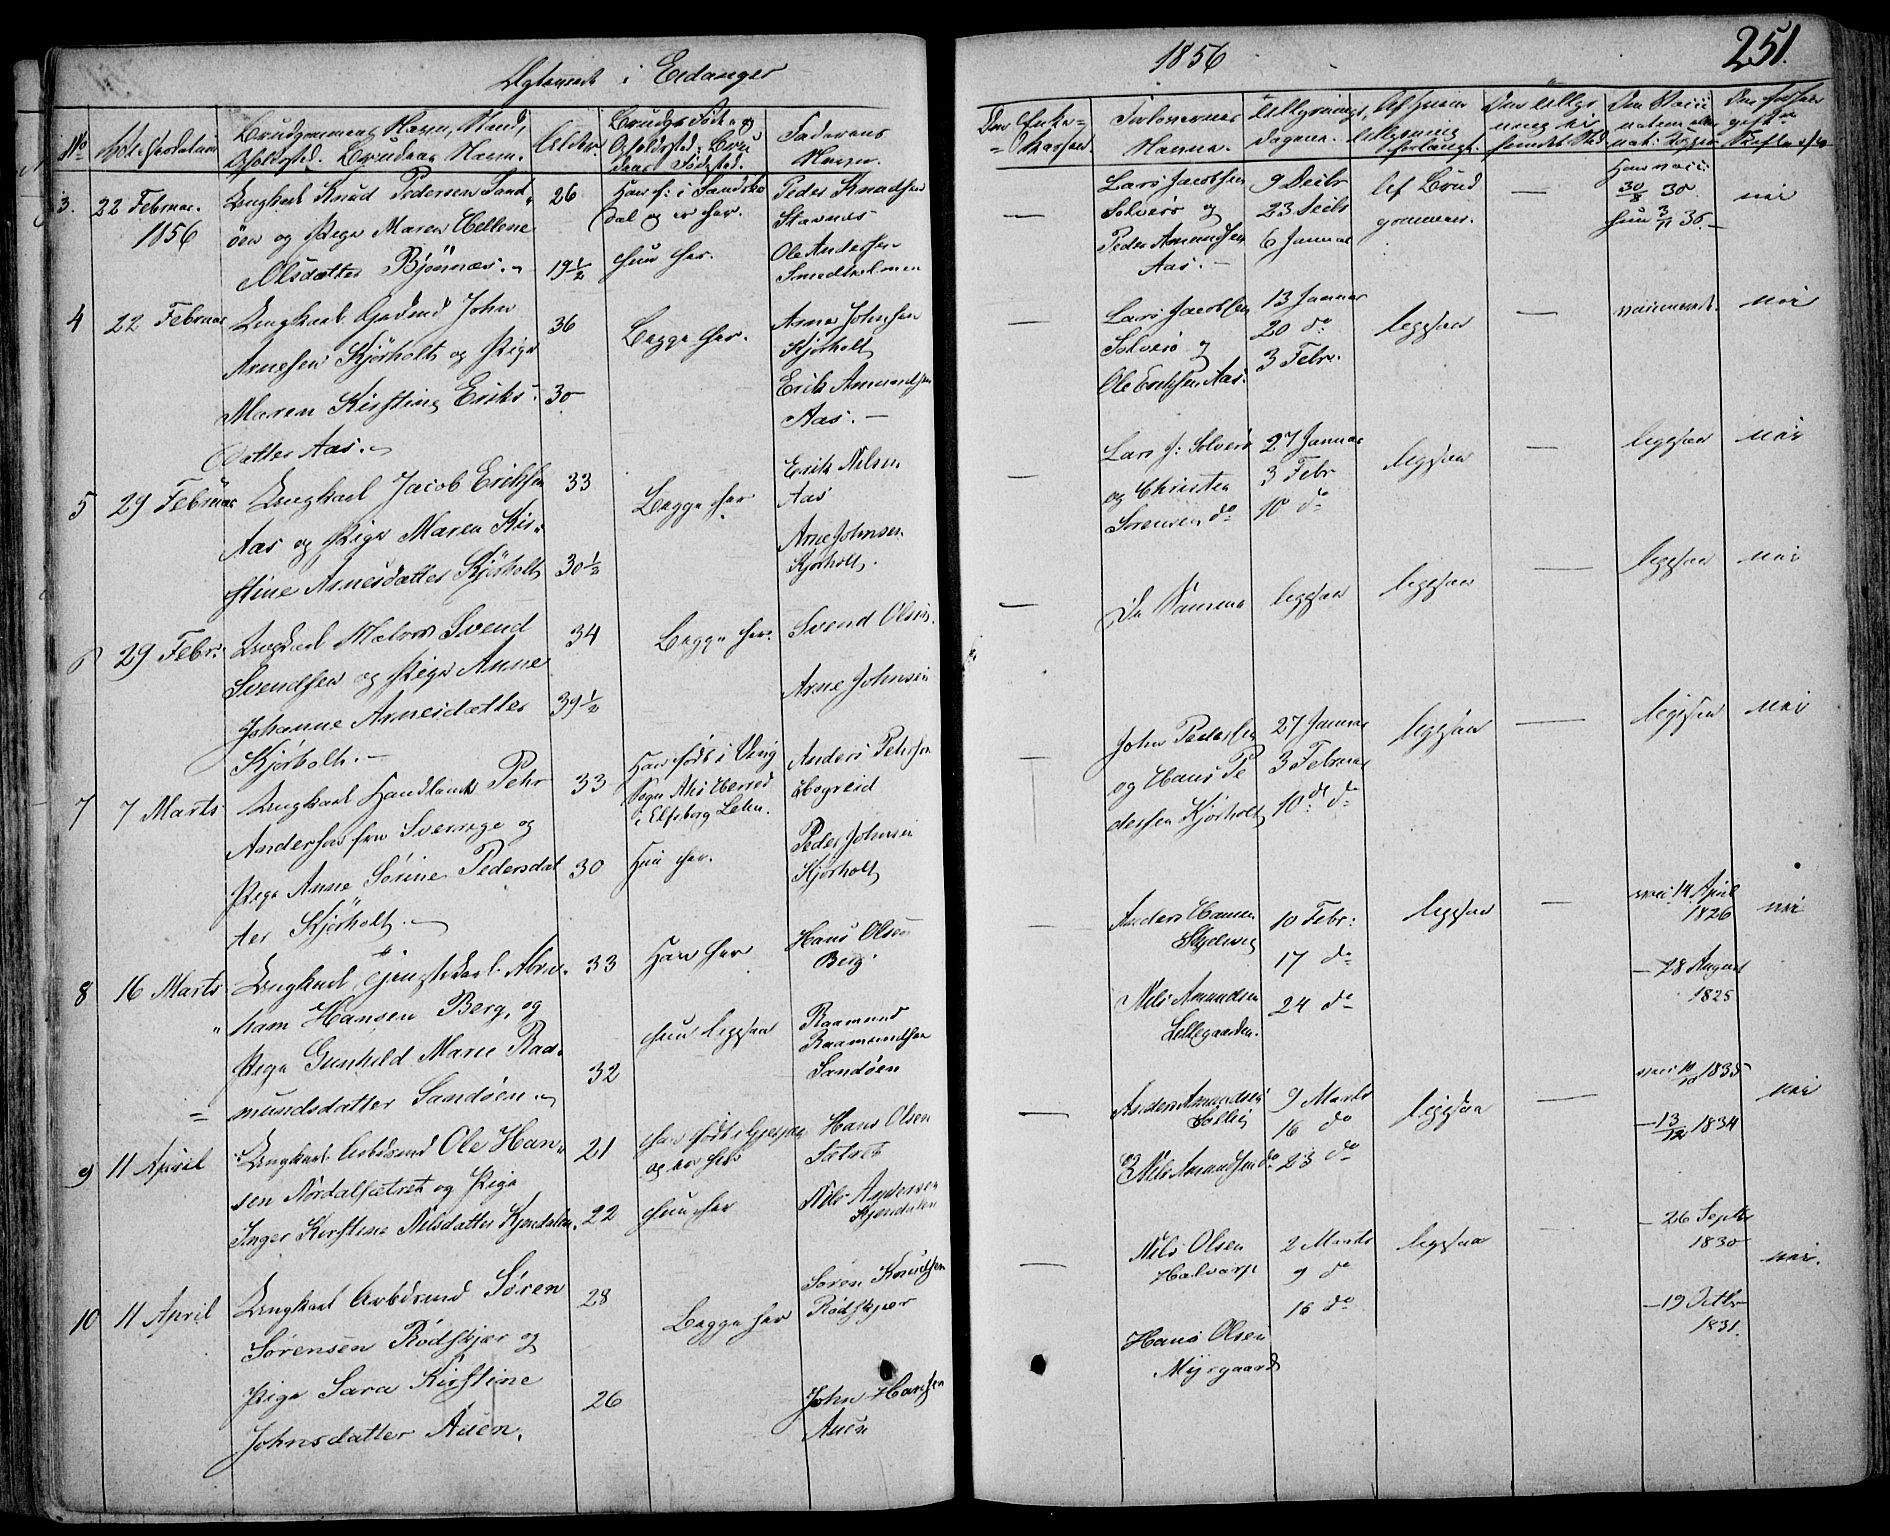 Ægteviede i Eidanger
1856
251.
No
Alder.
Faderens Navn.
Forlovernes Navne.
3. 22 Februar. 1856
Ungkarl Knud Pedersen Sand-
öen og Pige Maren Hellene
Olsdatter Björnnæs.
26
19½
Han f: i Sandsko
dal og er her.
Hun her.
Peder Knudsen
Stavnes
Ole Andersen
Smedholmen
Lars Jacobsen
Solverö og
Peder Amundsen
Aas.
9 Decbr
23 Decbr
6 Januar
Af Brud
gommen.
30/8 30
hun 3/11 35.
nei
4 22 Februar
Ungkarl Gadmd John
Arnesen Kjörholt og Pige
Maren Kirstine Eriks-
datter Aas.
36
30
Begge her.
Arne Johnsen
Kjörholt
Erik Amundsen
Aas.
Lars Jacobsen
Solverö og
Ole Eriksen Aas.
13 Januar
20 do
3 Febr.
ligesaa
vaccineret.
nei
5 29 Februar
Ungkarl Jacob Eriksen
Aas og Pige Maren Kir-
stine Arnesdatter Kjörholt
33
30½
Begge her
Erik Nilsen
Aas
Arne Johnsen
Kjörholt.
Lars J: Solverö
og Christen
Sörensen do
27 Januar
3 Febr
10 do
ligesaa
ligesaa
nei
6 29 Febr.
Ungkarl Matros Svend
Svendsen og Pige Anne
Johanne Arnesdatter
Kjörholt.
34
39½
Begge her.
Svend Olsen.
Arne Johnsen
De Samme
ligesaa
ligesaa
ligesaa
nei
7 7 Marts
Ungkarl Handlende Pehr
Andersson fra Sverrige og
Pige Anne Sörine Pedersdat
ter Kjörholt.
33
30
Han födt i Ving
Sogn Ahs Herred
i Elfsborg Lehn.
Hun her.
Anders Pehrson
Peder Johnsen
Kjörholt
John Pedersen
og Hans Pe
dersen Kjörholt
27 Januar
3 Februar
10de do
ligesaa
ligesaa
nei
8 16 Marts
Ungkarl Abra-
ham Hansen Berg, og
Pige Gunhild Marie Raa-
mundsdatter Sandöen.
33
32
Han her
Hun ligesaa
Hans Olsen
Berg.
Raamund
Raamundsen
Sandöen
Anders Hansen
Skjelvig
Nils Amundsen
Lillegaarden.
10 Febr.
17 do
24 do
ligesaa
vac: 14 April
1826
28 August
1825
nei
9 11 April
Ungkarl Arbdsmd Ole Han-
sen Nordalsætret og Pige
Inger Kirstine Nilsdatter Kjendalen.
21
22
Han födt i Gjerpen
og er her
Hun her
Hans Olsen
Sætret
Nils Andersen
Kjendalen
Anders Amundsen
Nils Amundsen do
9 Marts
16 do
23 do
ligesaa
1835
13/12 1834
nei
10 11 April
Ungkarl Arbdsmd Sören
Sörensen Rödskjær og
Pige Sara Kirstine
Johnsdatter Auen.
28
26
Begge her
Sören Knudsen
Rödskjær
John Hansen
Auen
Nils Olsen
Halvarp
Hans Olsen
Myrgaard
2 Marts
9 do
16 do
ligesaa
26 Septbr
1830
19 Octbr
1831.
nei.